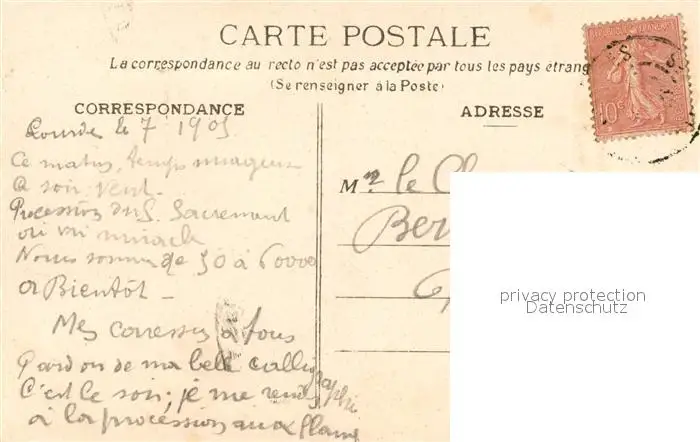 CARTE POSTALE
La correspondance au recto n'est pas acceptée par tous les pays étrang
(Se renseigner à la Poste)
CORRESPONDANCE
ADRESSE
Lourdes le 7 1905
Ce matin, temps nuageux
Ce soir vent.
Procession du S. Sacrement
où un miracle
Nous sommes de 50 à 60000
a Bientôt _
Mes caresses à tous
Pardon de ma belle calligraphie
C'est le soir; je me rends
à la procession aux flam
Mr le
Ber
REPUBLIQUE FRANÇAISE
10c
privacy protection
Datenschutz